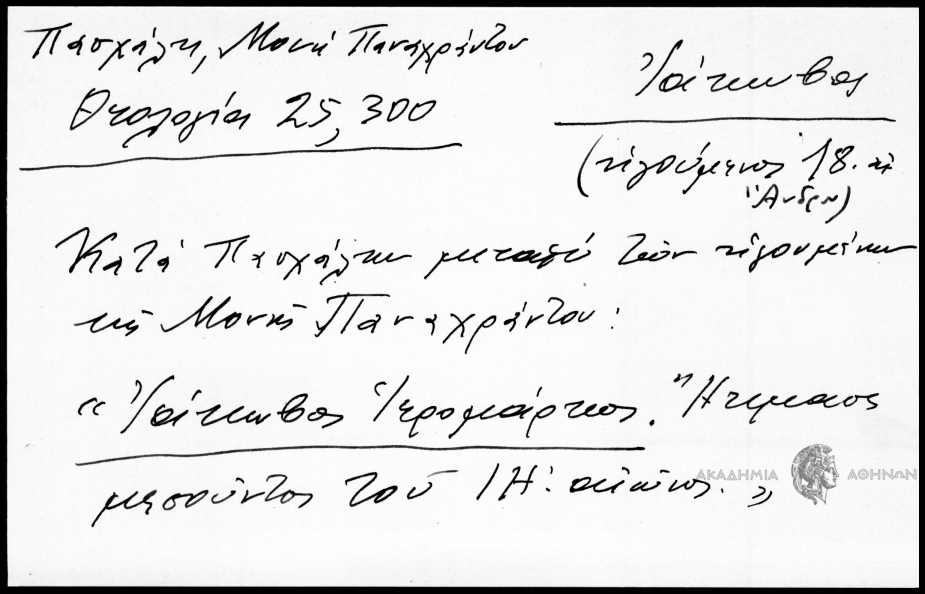 Πασχάλη, Μονή Παναχράντου
Θεολογία 25, 300
Ἰάκωβος
(ἡγούμενος 18. αἰ
Ἄνδρου)
Κατά Πασχάλην μεταξύ τῶν ἡγουμένων
τῆς Μονῆς Παναχράντου:
« Ἰάκωβος Ἱερομάρτυς. Ἤκμασε
μεσοῦντος τοῦ ΙΗ΄. αἰῶνος. »
ΑΚΑΔΗΜΙΑ ΑΘΗΝΩΝ